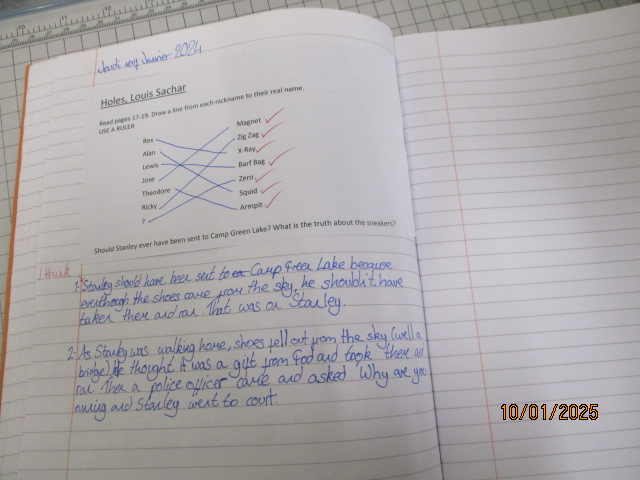 Jeudi Janvier 2024
Holes, Louis Sachar
Read pages 17-19. Draw a line from each nickname to their real name.
USE A RULER
Rex
Alan
Lewis
Jose
Theodore
Ricky
?
Magnet
Zig Zag
X-Ray
Barf Bag
Zero
Squid
Armpit
Should Stanley ever have been sent to Camp Green Lake? What is the truth about the sneakers?
I think
1. Stanley should have been sent to Camp Green Lake because
eventhough the shoes came from the sky, he shouldn't have
taken them and ran. That was on Stanley.
2. As Stanley was walking home, shoes fell out from the sky (well a
bridge). He thought it was a gift from God and took them and
ran. Then a police officer came and asked 'Why are you
runing and Stanley went to court.
10/01/2025